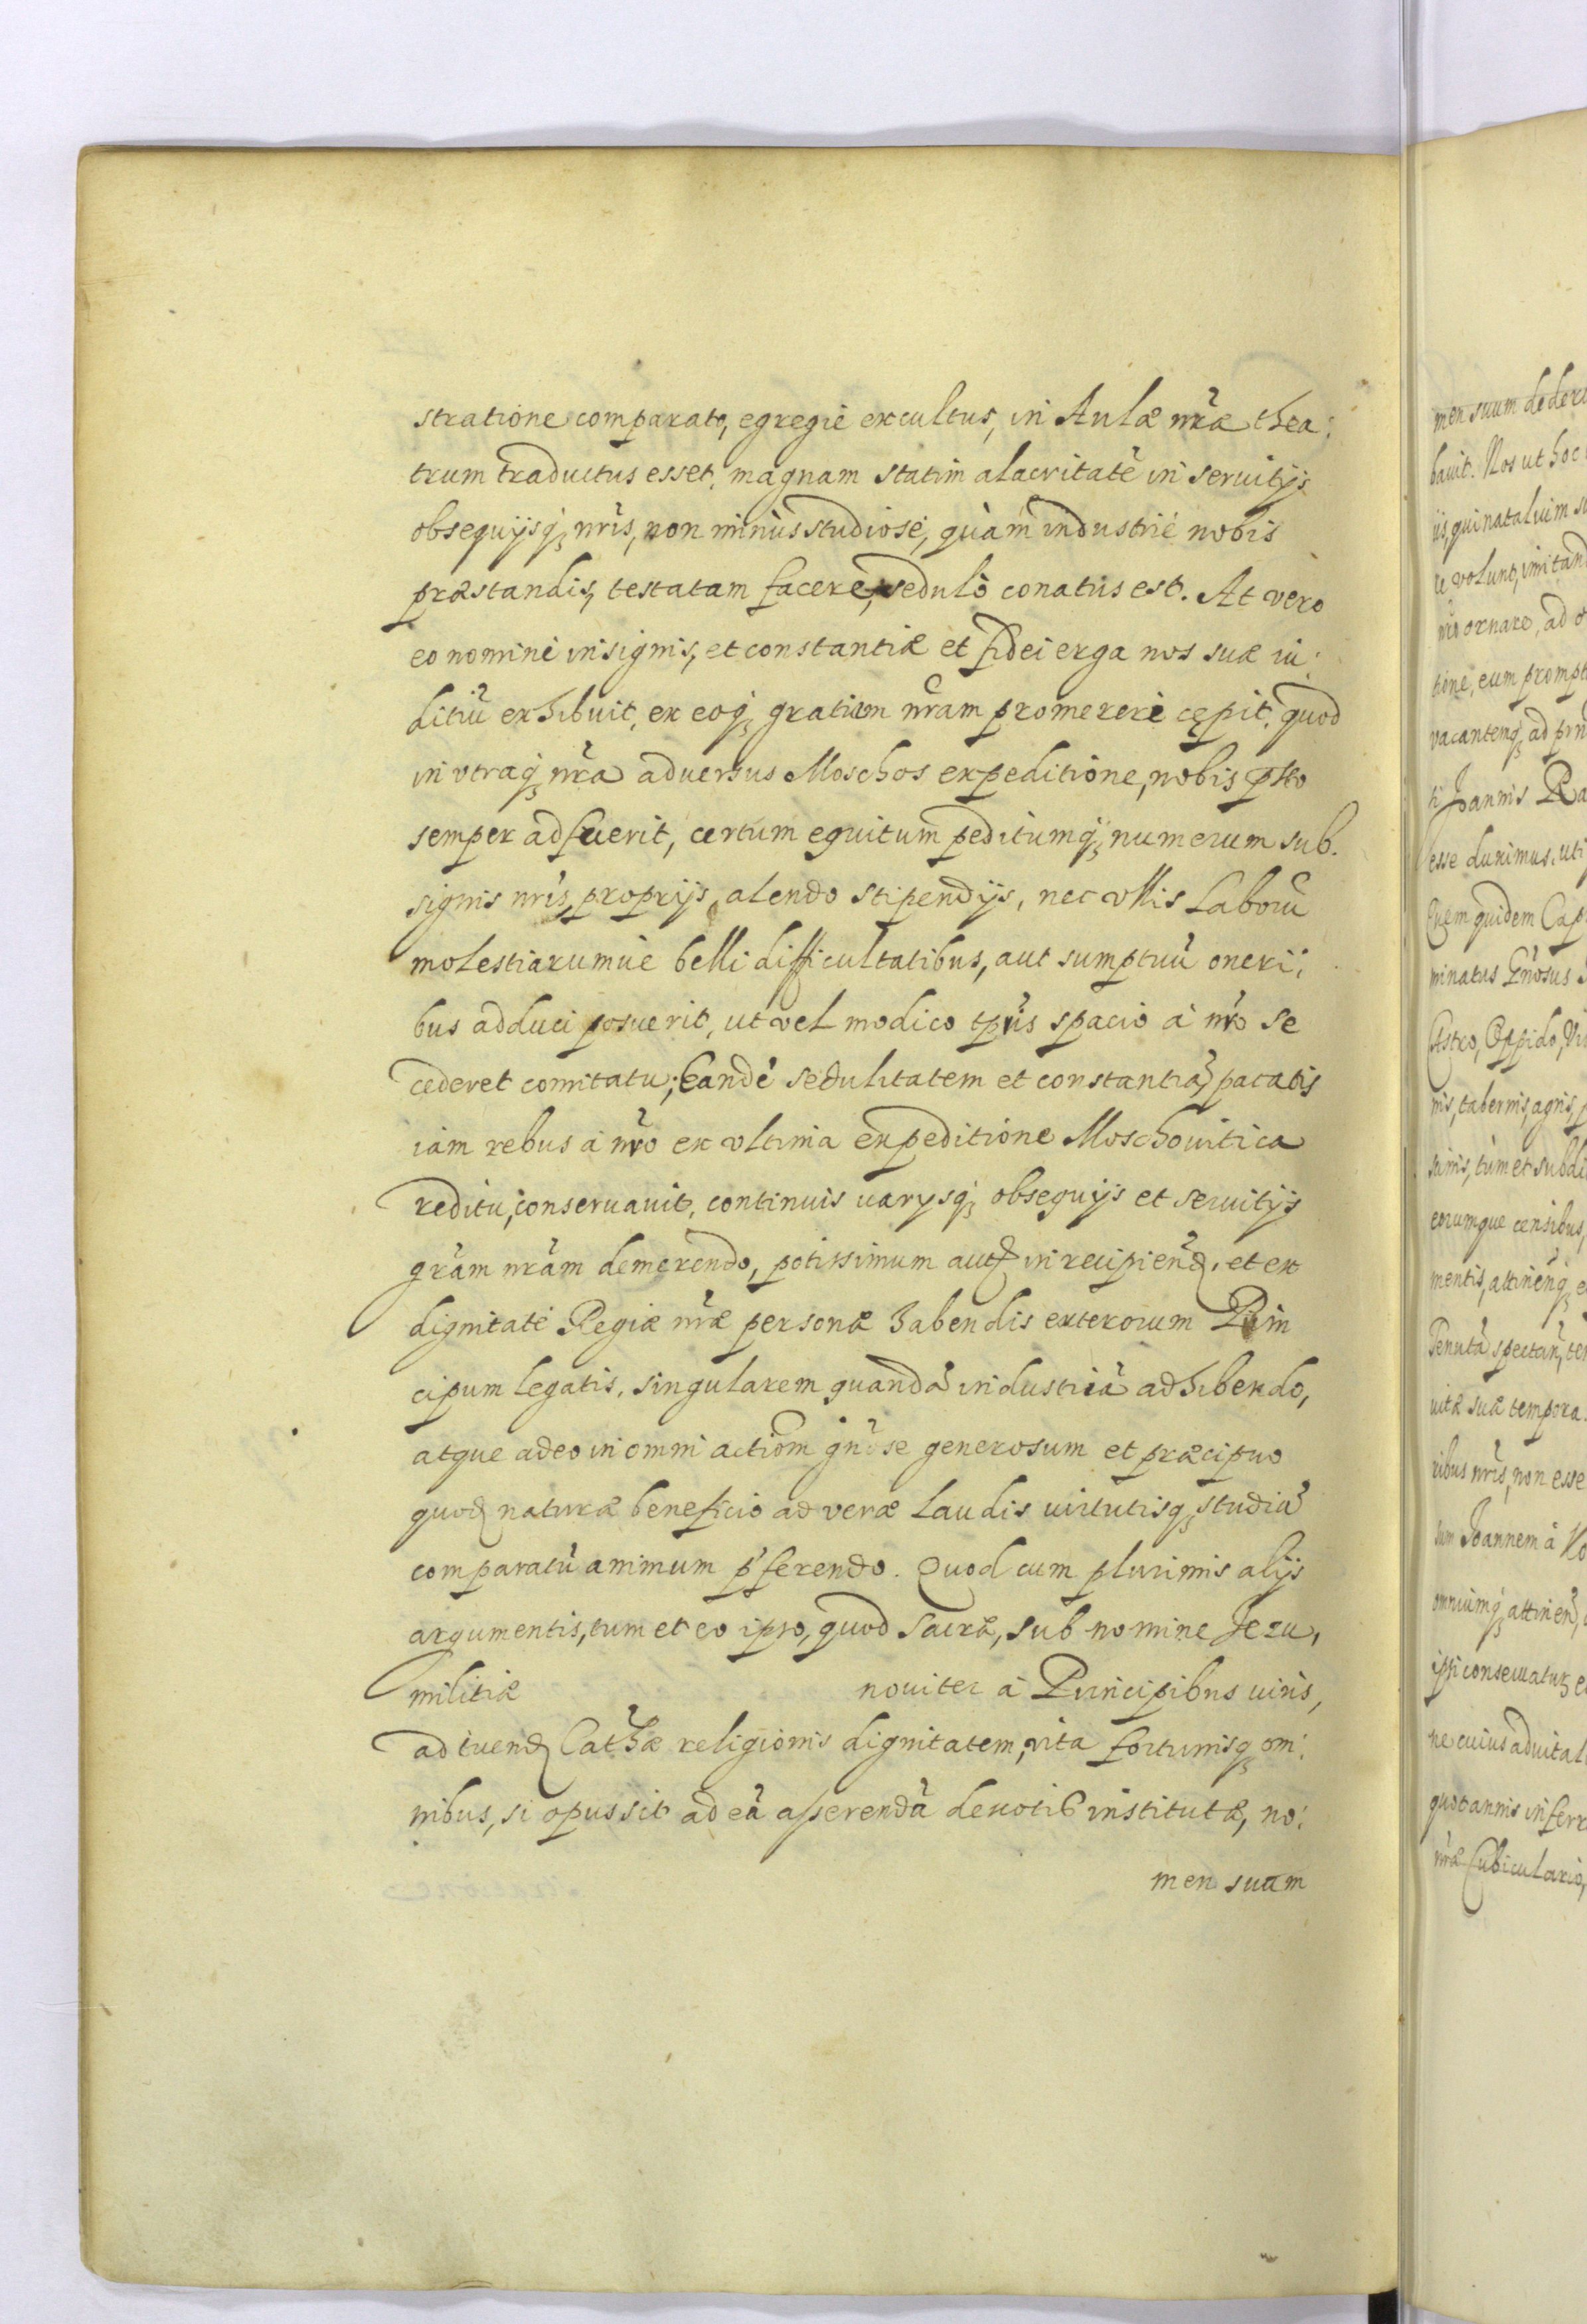 stratione comparato, egregie excultus, in Aulæ nr̃æ thea:
trum traductus esset, magnam statim alacritatẽ in seruitijs
obsequijsq; nr̃is, non minùs studiosè, quàm industriè nobis
præstandis, testatam facere, sedulò conatus est. At vero
eo nomine insignis, et constantiæ et fidei erga nos suæ iu:
ditiũ exhibuit, ex eoq; gratiam nr̃am promereri cępit, quod
in vtraq; nr̃a aduersus Moschos expeditione, nobis p̃sto
semper adfuerit, certum equitum peditumq; numerum sub
signis nr̃is, proprijs, alendo stipendijs, nec vllis Laborũ
molestiarumue belli difficultatibus, aut sumptuũ oneri:
bus adduci posuerit, ut vel modico tp̃ris spacio à nr̃o se
cederet comitatu; Eandẽ sedulitatem et constantiã, pacatis
iam rebus à nr̃o ex vltima expeditione Moschouitica
reditu, conseruauit, continuis uarysq; obsequijs et seruitijs
gr̃am nr̃am demerendo, potissimum aut in recipiend, et ex
dignitate Regiæ nr̃æ personæ habendis exterorum Prin
cipum legatis, singularem quandã industriã adhibendo,
atque adeo in omni actiom gñose generosum et præcipuo
quod naturæ beneficio ad veræ Laudis uirtutisq; studiũ
comparatũ animum p̃ferendo. Quod cum plurimis alijs
argumentis, tum et eo ipso, quod Sacræ, sub nomine Jezu,
militiæ nouiter à Principibus uiris,
ad tuend Cathæ religionis dignitatem, vita fortunisq; om:
nibus, si opus sit ad eã asserendã deuotis institutæ, no:
men suum
men suum deder
bauit. Nos ut hoc
iis, qui natalium su
le volunt, imitand
nio ornare, ad
tione, eum prompt
vacantemq; ad pr
ti Joannis Ra
esse duximus, uti
Quem quidem Cap
minatus Gñosus
Castro, Oppido, Vi
nis, tabernis, agris, p
simis, tùm et subdi
eorumque censibus,
mentis, attineñq; e
Tenutã spectañ, te
uitæ suæ tempora.
ribus nr̃is, non esse
sum Joannem à Ko
omniumq; attineñ,
ipsi conseruatur, e
ne cuius aduital
quotannis inferr
nr̃æ Cubiculario,